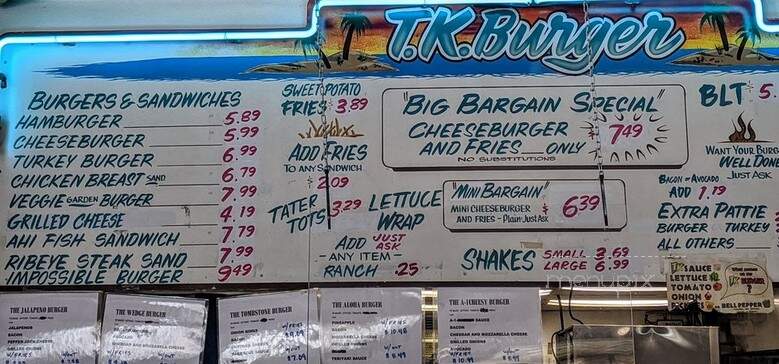 T.K. Burger
BURGERS & SANDWICHES
HAMBURGER 5.89
CHEESEBURGER 5.99
TURKEY BURGER 6.99
CHICKEN BREAST SAND 6.79
VEGGIE GARDEN BURGER 7.99
GRILLED CHEESE 4.19
AHI FISH SANDWICH 7.79
RIBEYE STEAK SAND 7.99
IMPOSSIBLE BURGER 9.49
SWEET POTATO
FRIES 3.89
ADD FRIES
TO ANY SANDWICH
$2.09
TATER
TOTS 3.29
LETTUCE
WRAP
JUST
ASK
ADD
- ANY ITEM -
RANCH .25
"BIG BARGAIN SPECIAL"
CHEESEBURGER
AND FRIES ONLY $7.49
NO SUBSTITUTIONS
"MINI BARGAIN"
MINI CHEESEBURGER
AND FRIES - Plain Just Ask
$6.39
SHAKES SMALL 3.69
LARGE 6.99
BLT 5.
WANT YOUR BURG
WELL DON
JUST ASK
BACON OR AVOCADO
ADD 1.79
EXTRA PATTIE
BURGER TURKEY
ALL OTHERS
TK SAUCE
LETTUCE
TOMATO
ONION
PICKLES
BELL PEPPER
menupix
THE JALAPENO BURGER
JALAPENOS
BACON
PEPPER JACK CHEESE
THE WEDGE BURGER
BACON
AVOCADO
THE TOMBSTONE BURGER
W/FRIES
$7.09
THE ALOHA BURGER
PINEAPPLE
BACON
TERIYAKI SAUCE
W/FRIES
THE A-1CHEESY BURGER
BACON
CHEDDAR AND MOZZARELLA CHEESE
GRILLED ONIONS
AVOCADO
W/FRIES